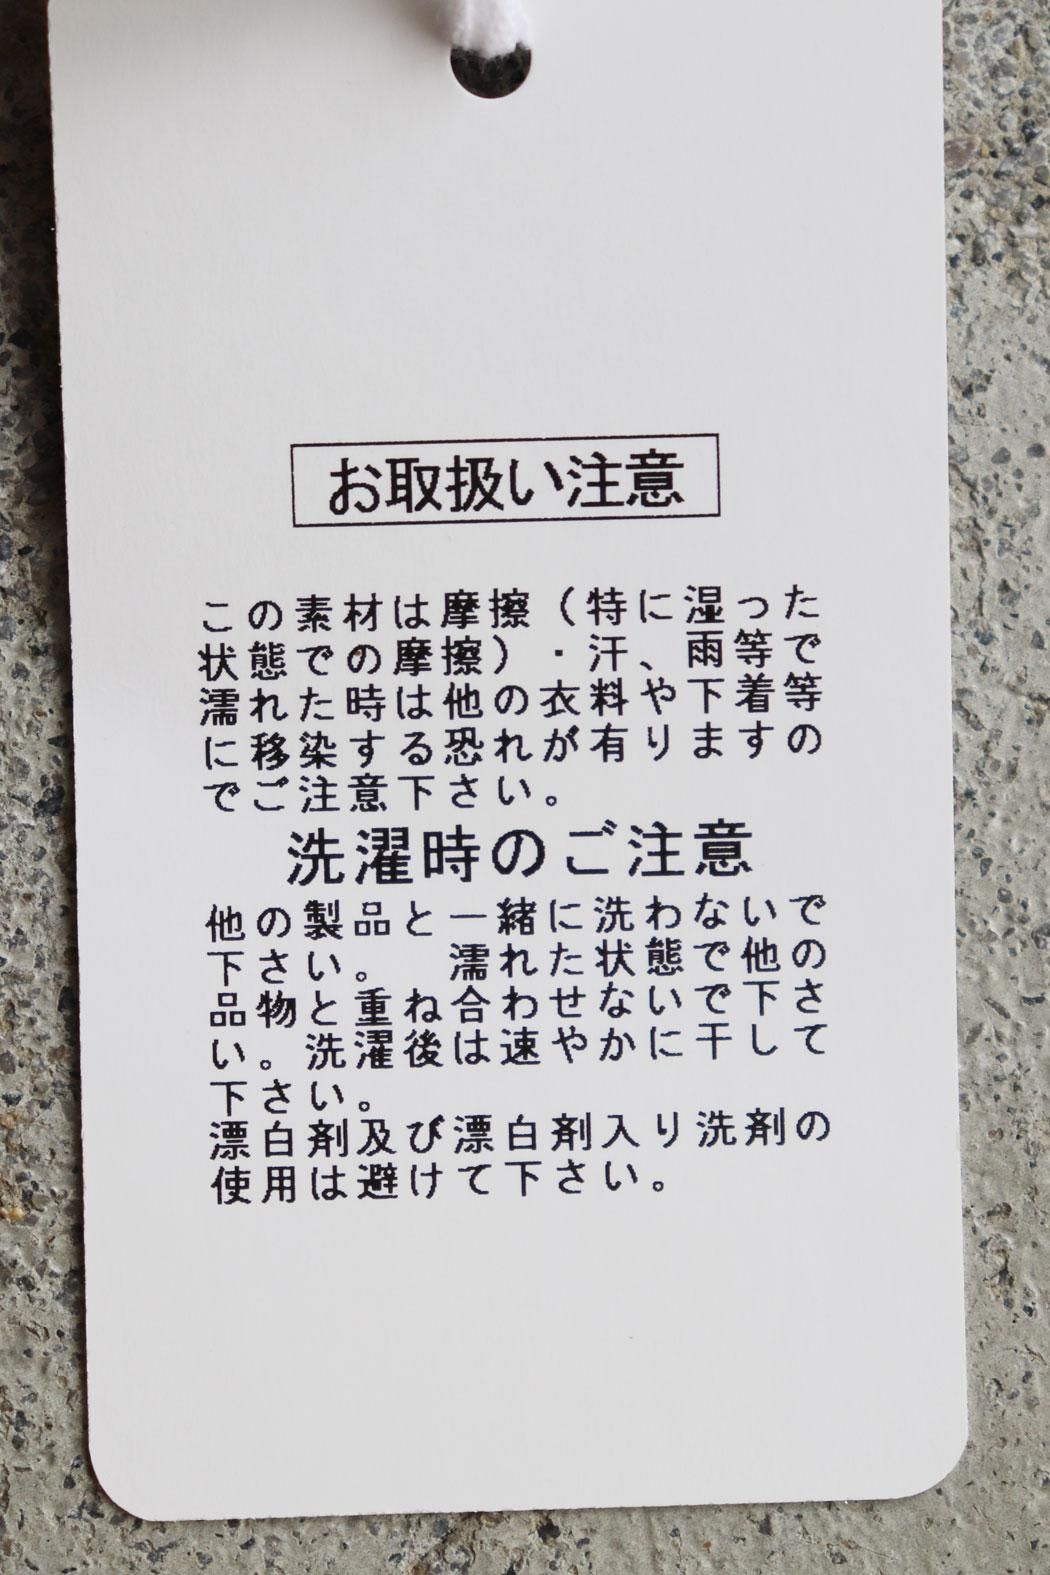 お取扱い注意
この素材は摩擦（特に湿った
状態での摩擦）・汗、雨等で
濡れた時は他の衣料や下着等
に移染する恐れが有りますの
でご注意下さい。
洗濯時のご注意
他の製品と一緒に洗わないで
下さい。　濡れた状態で他の
品物と重ね合わせないで下さ
い。洗濯後は速やかに干して
下さい。
漂白剤及び漂白剤入り洗剤の
使用は避けて下さい。